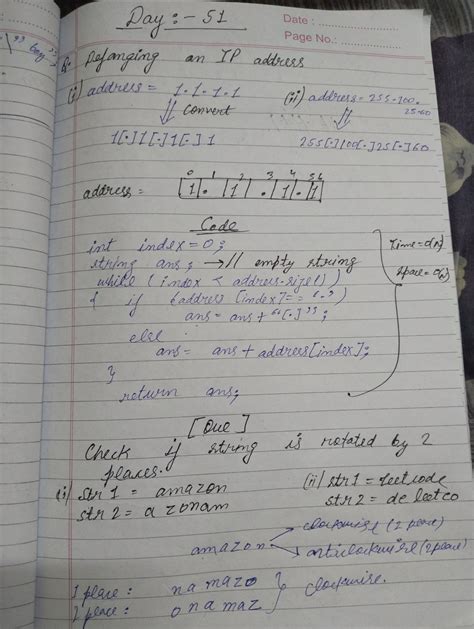 Day :- 51
Date :
Page No.:
Q. Defanging an IP address
(i) address = 1.1.1.1
(ii) address = 255.100.
25.60
Convert
1[.]1[.]1[.]1
255[.]100[.]25[.]60
0 1 2 3 4 5 6
address = 1 . 1 . 1 . 1
Code
int index = 0;
string ans; → // empty string
while (index < address.size())
{ if (address[index] == ".")
ans = ans + "[.]";
else
ans = ans + address[index];
}
return ans;
Time = O(n)
Space = O(n)
[Que]
Check if string is rotated by 2
places.
(i) str1 = amazon
str2 = azonam
(ii) str1 = leetcode
str2 = deleetco
amazon
clockwise (2 place)
anticlockwise (2 place)
1 place : namazo
2 place : onamaz
} clockwise.